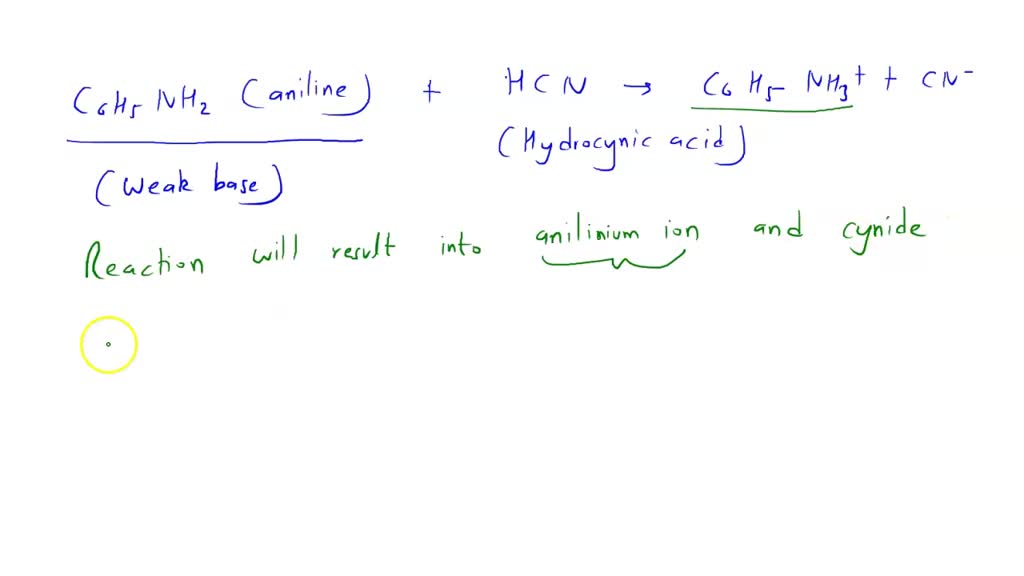 C6H5NH2 (aniline) + HCN → C6H5-NH3+ + CN-
(Weak base) (Hydrocynic acid)
Reaction will result into anilinium ion and cynide